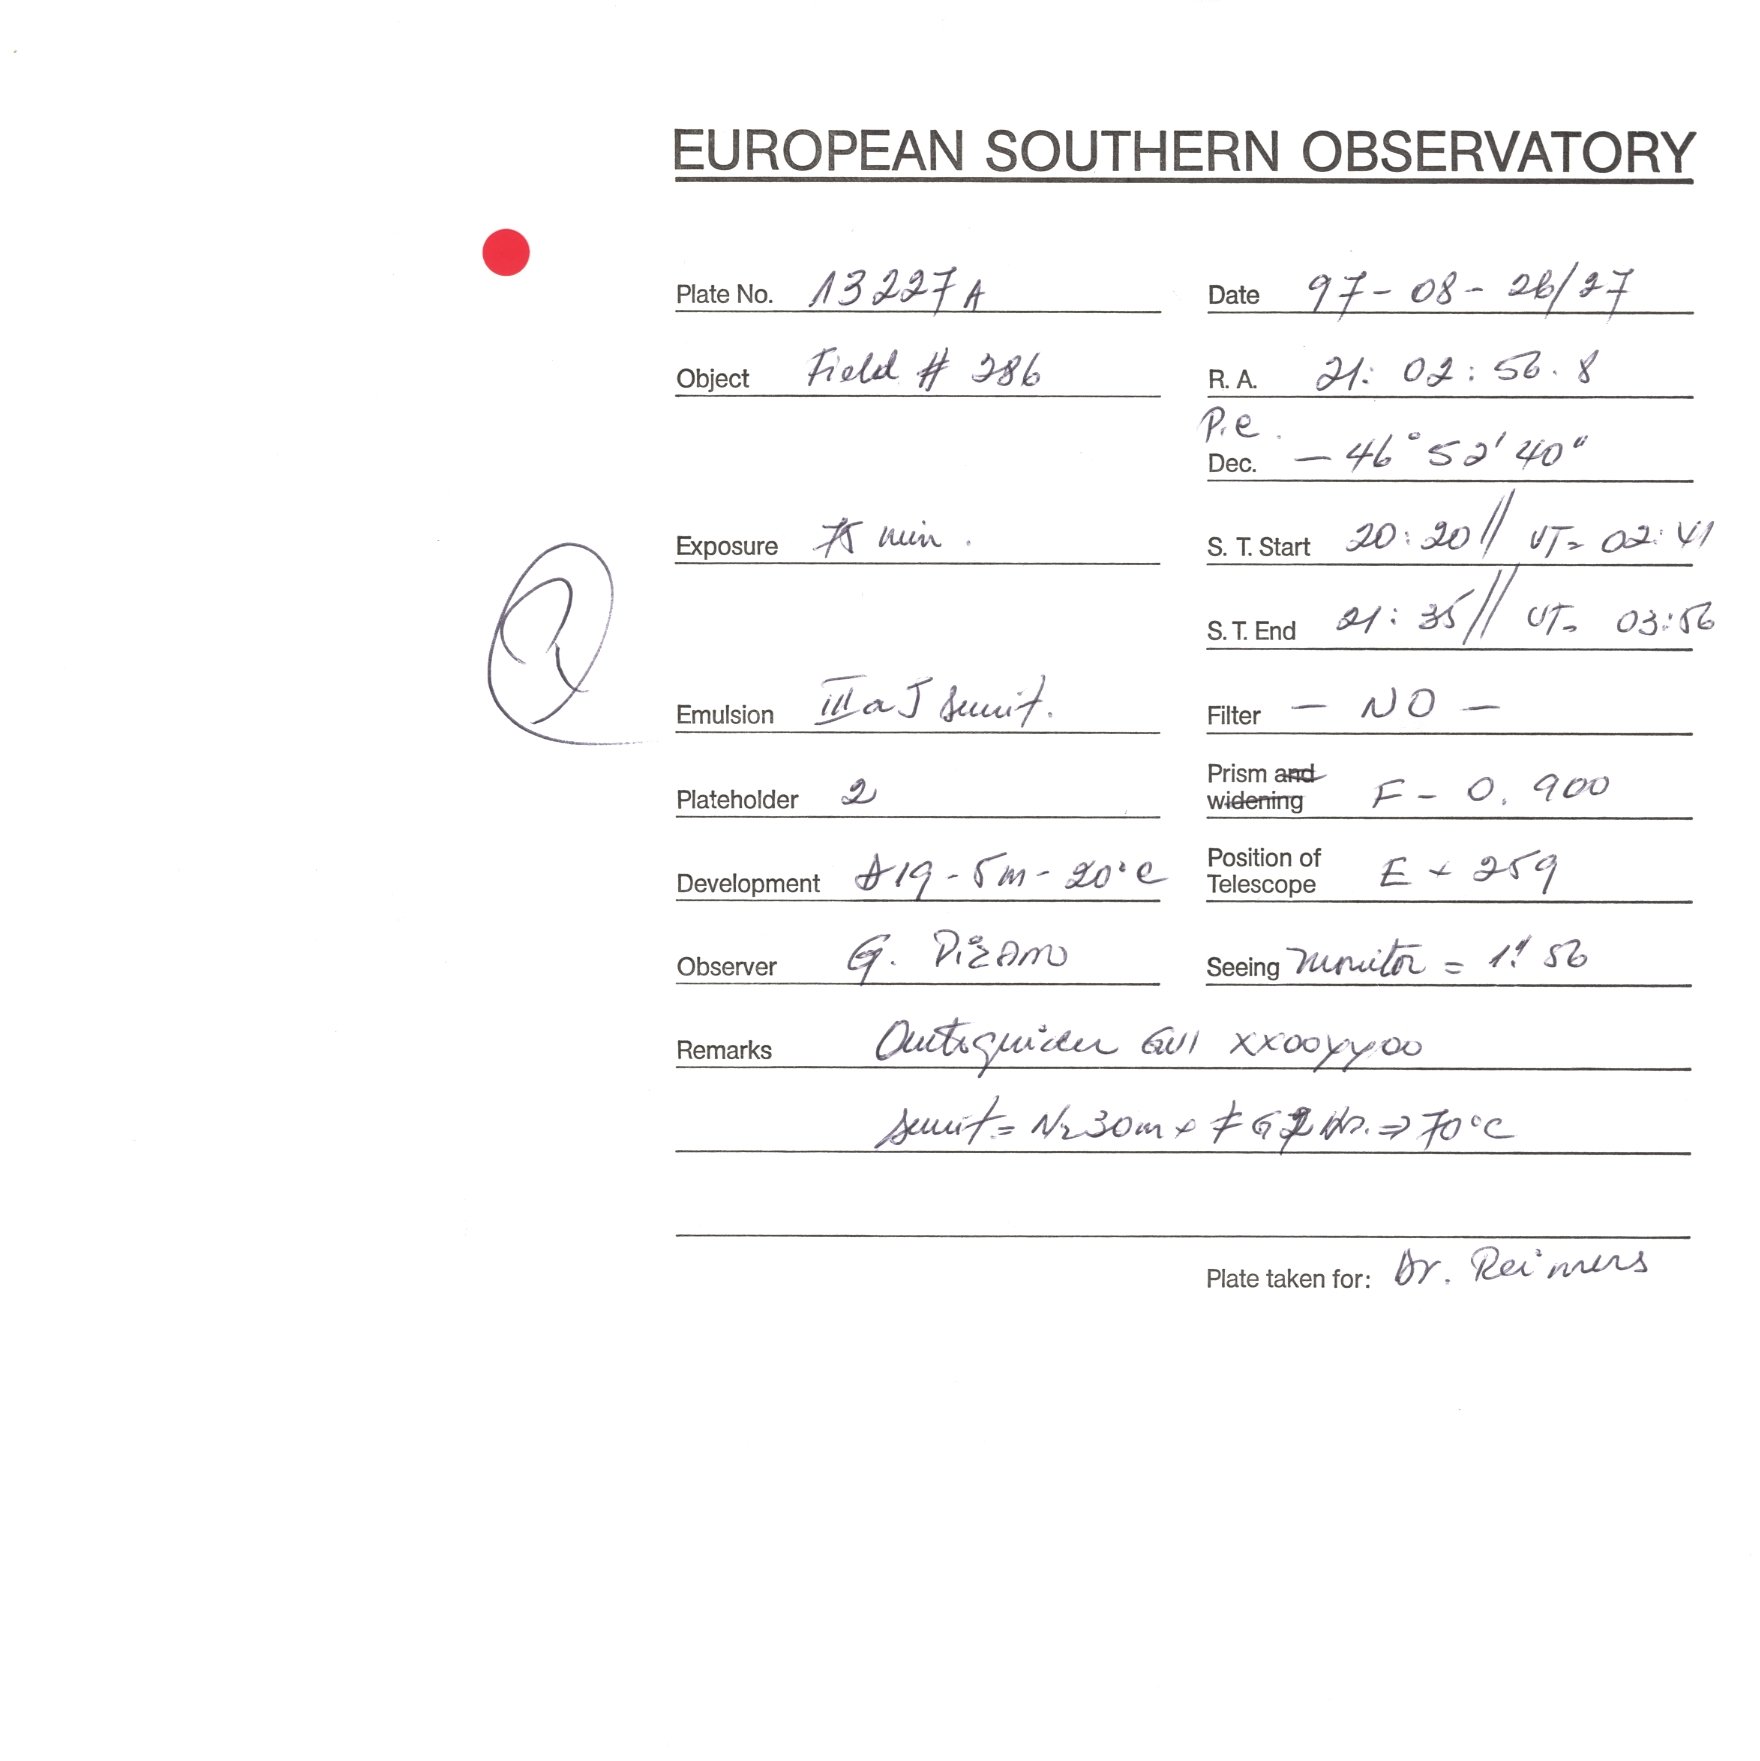 EUROPEAN SOUTHERN OBSERVATORY
Plate No. 13227A Date 97-08-26/27
Object Field # 286 R. A. 21: 02: 56. 8
P.e.
Dec. - 46° 52' 40"
Exposure 75 min. S. T. Start 20:20// UT= 02:41
S. T. End 21:35// UT= 03:56
Emulsion IIIaJ sensit. Filter - NO -
Plateholder 2 Prism and widening F - 0.900
Development D19-5m-20°C Position of Telescope E + 259
Observer G. Pizarro Seeing Monitor = 1"56
Remarks Autoguider GUI XX00YY00
sensit= N2 30m + FG 2 Hr. => 70°C
Plate taken for: Dr. Reimers